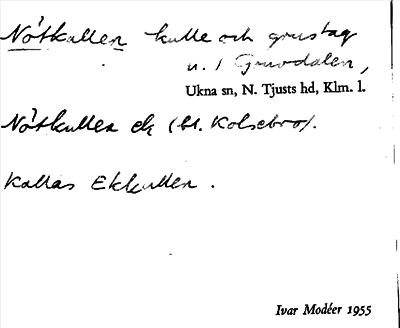 Nötkullen kulle och grustag
n. I Gruvdalen,
Ukna sn, N. Tjusts hd, Klm. l.
Nötkullen ek (bl. Kolsebro).
Kallas Ekkullen.
Ivar Modéer 1955